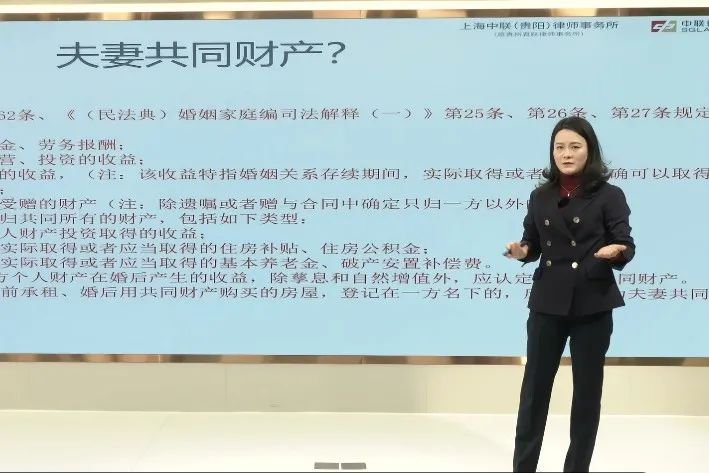 上海中联(贵阳)律师事务所
(原贵州君跃律师事务所)
中联
SGLA
夫妻共同财产?
62条、《(民法典)婚姻家庭编司法解释(一)》第25条、第26条、第27条规定
金、劳务报酬;
营、投资的收益;
的收益,(注:该收益特指婚姻关系存续期间,实际取得或者 确可以取得
;
受赠的财产(注:除遗嘱或者赠与合同中确定只归一方以外
归共同所有的财产,包括如下类型:
人财产投资取得的收益;
实际取得或者应当取得的住房补贴、住房公积金;
实际取得或者应当取得的基本养老金、破产安置补偿费。
方个人财产在婚后产生的收益,除孳息和自然增值外,应认定 同财产。
前承租、婚后用共同财产购买的房屋,登记在一方名下的, 夫妻共同